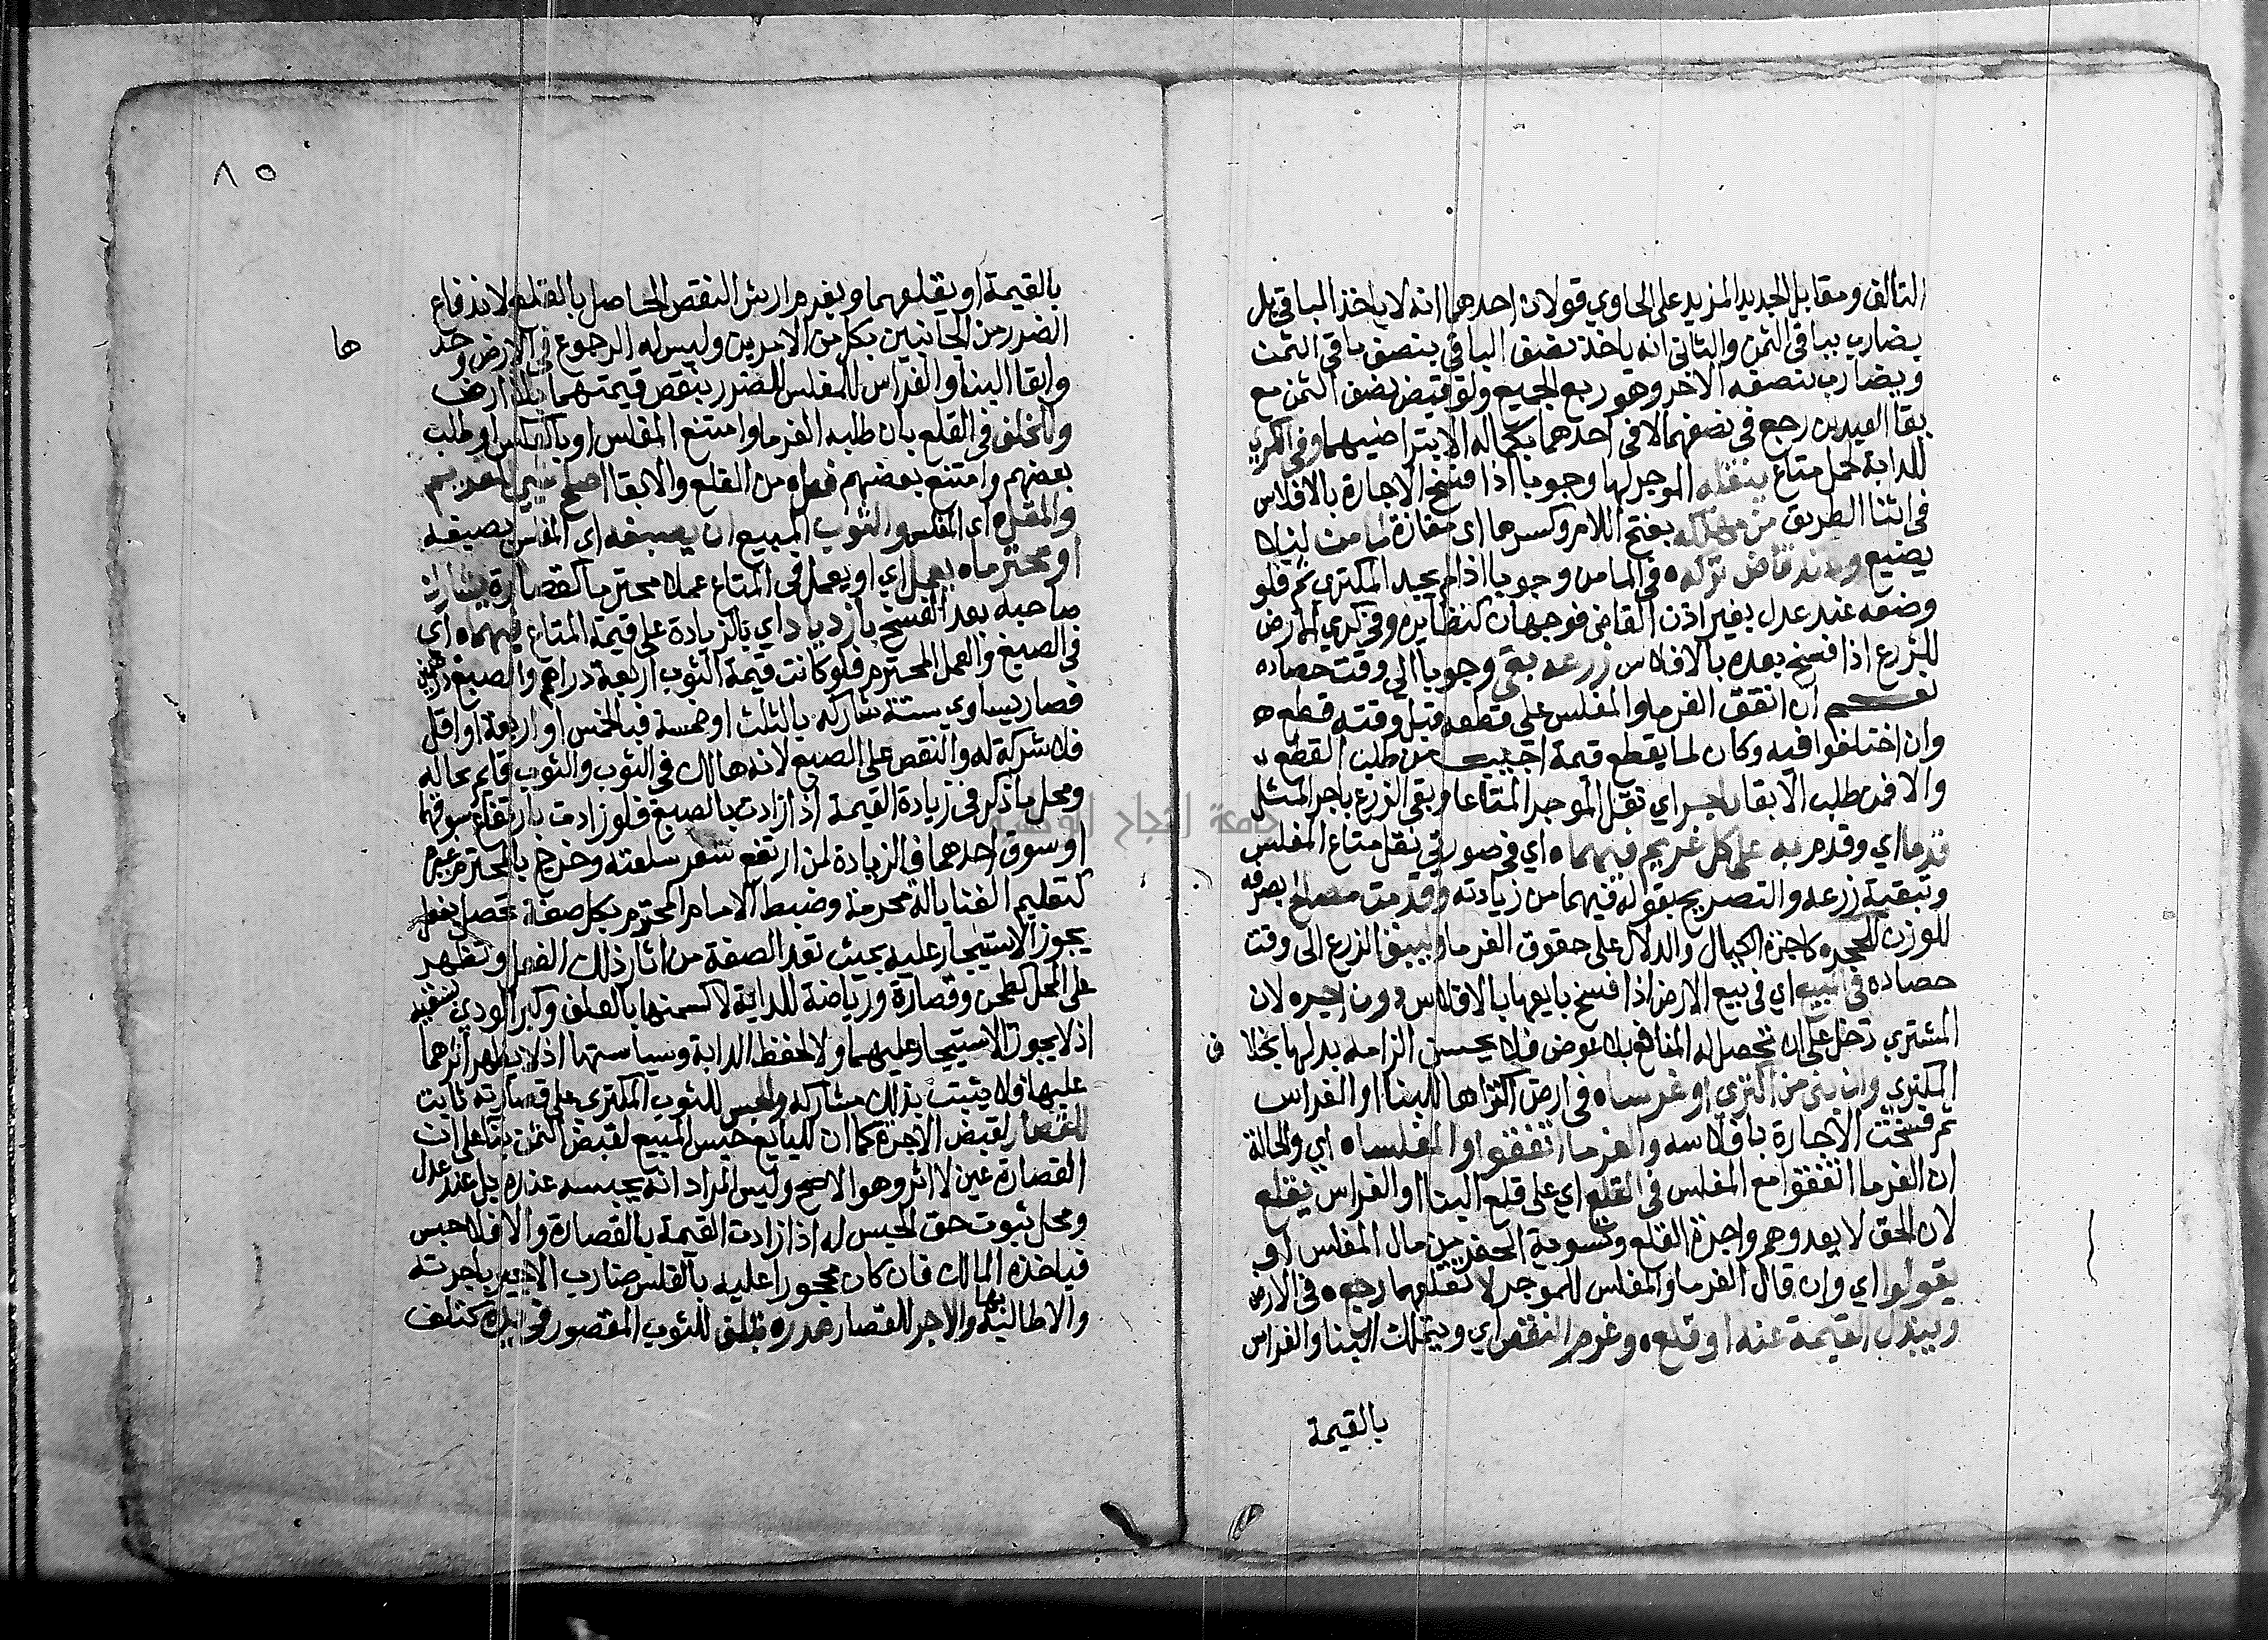 التالف ومقابل الجديد المزيد على الحاوي قولان احدهما انه لا ياخذ الباقي بل
يضارب بباقي الثمن والثاني انه ياخذ نصف الباقي بنصف باقي الثمن
ويضارب بنصفه الاخر وهو ربع الجميع ولو قبض نصف الثمن مع
بقا العبدين رجع في نصفهما لا في احدهما بكماله الا بتراضيهما وفي
للدابة لحمل متاع ينقله الموجر لها وجوبا اذا فسخ الاجارة بالافلاس
في اثنا الطريق من مهلكه بفتح اللام وكسرها اي مفازة لمامن ليلا
يضيع وعند قاض تركه في المامن وجوبا اذا لم يجد المكتري ثم فلو
وضعه عند عدل بغير اذن القاضي فوجهان كنظايره وفي كري لارض
للزرع اذا فسخ بعده بالافلاس زرعه بقي وجوبا الى وقت حصاده
نعم ان اتفق الغرما والمفلس على قطعه قبل وقته قطع
وان اختلفوا فيه وكان لما يقطع قيمة اجيب من طلب القطع
والا فمن طلب الابقا باجر اي نقل الموجر المتاع وبقى الزرع باجر المثل
قدما اي وقدم به على كل غريم فيهما اي في صورتي نقل متاع المفلس
وتبقية زرعه والتصريح بقوله فيهما من زيادته وقدمت مصالح
للوزن للحجر كاجرة الكيال والدلال على حقوق الغرما وليبق الزرع الى وقت
حصاده في البيع اي في بيع الارض اذا فسخ بايعها بالافلاس دون اجره لان
المشتري دخل على ان تحصل له المنافع بلا عوض فلا يحسن الزامه بدلها بخلا ف
المكتري وان بنى من اكتري او غرساه في ارض اكتراها للبنا او الغراس
ثم فسخت الاجارة بافلاسه والغرما اتفقوا والمفلسا اي والحالة
ان الغرما اتفقوا مع المفلس في القلع اي على قلع البنا او الغراس يقلع
لان الحق لا يعدوهم واجرة القلع وتسوية الحفر من مال المفلس او
يقولوا اي وان قال الغرما والمفلس للموجر لا نقلعهما رجع في الارض
ويبذل القيمة عنه او قلع وغرم النقص اي ويتملك البنا والغراس
بالقيمة
٨٥
بالقيمة او يقلعهما ويغرم ارش النقص الحاصل بالقلع لاندفاع
الضرر من الجانبين بكل من الامرين وليس له الرجوع في الارض وحد ها
وابقا البنا والغراس للمفلس للضرر بنقص قيمتهما بلا ارض
ولالخلف في القلع بان طلبه الغرما وامتنع المفلس او بالعكس او طلب
بعضهم وامتنع بعضهم فعل من القلع والابقا
والمفلس اي المفلس والثوب المبيع ان يصبغه اي المفلس بصبغه
او محترما بعمل اي او يعمل في المتاع عملا محترما كقصارة يشارك
صاحبه بعد الفسخ بازدياد اي بالزيادة على قيمة المتاع فيهما اي
في الصبغ والعمل المحترم فلو كانت قيمة الثوب اربعة دراهم والصبغ درهمين
فصار يساوي ستة شاركه بالثلث او خمسة فبالخمس او اربعة او اقل
فلا شركة له والنقص على الصبغ لانه هالك في الثوب والثوب قايم بحاله
ومحل ما ذكر في زيادة القيمة اذا زادت بالصبغ فلو زادت بارتفاع سوقهما
او سوق احدهما فالزيادة لمن ارتفع سعر سلعته وخرج بالمحترم غيره
كتعليم الغنا بالة محرمة وضبط الامام المحترم بكل صفة تحصل بفعل
يجوز الاستيجار عليه بحيث تعد الصفة من اثار ذلك الفعل وتظهر
على المحل كطحن وقصارة ورياضة للدابة لا كسمنها بالعلف وكبر الودي بسقيه
اذ لا يجوز الاستيجار عليهما ولا لحفظ الدابة وسياستها اذ لا يظهر اثرهما
عليها فلا يثبت بذلك مشاركه والحبس للثوب المكتري على قصارته ثابت
للقصار لقبض الاجرة كما ان للبايع حبس المبيع لقبض الثمن بنا على ان
القصارة عين لا اثر وهو الاصح وليس المراد انه يحبسه عنده بل عند عدل
ومحل ثبوت حق الحبس له اذا زادت القيمة بالقصارة والا فلا حبس
فياخذه المالك فان كان محجورا عليه بالفلس ضارب الاجير باجرته
والا طالبه بها والاجر للقصار هدره بتلف للثوب المقصور في يده كتلف